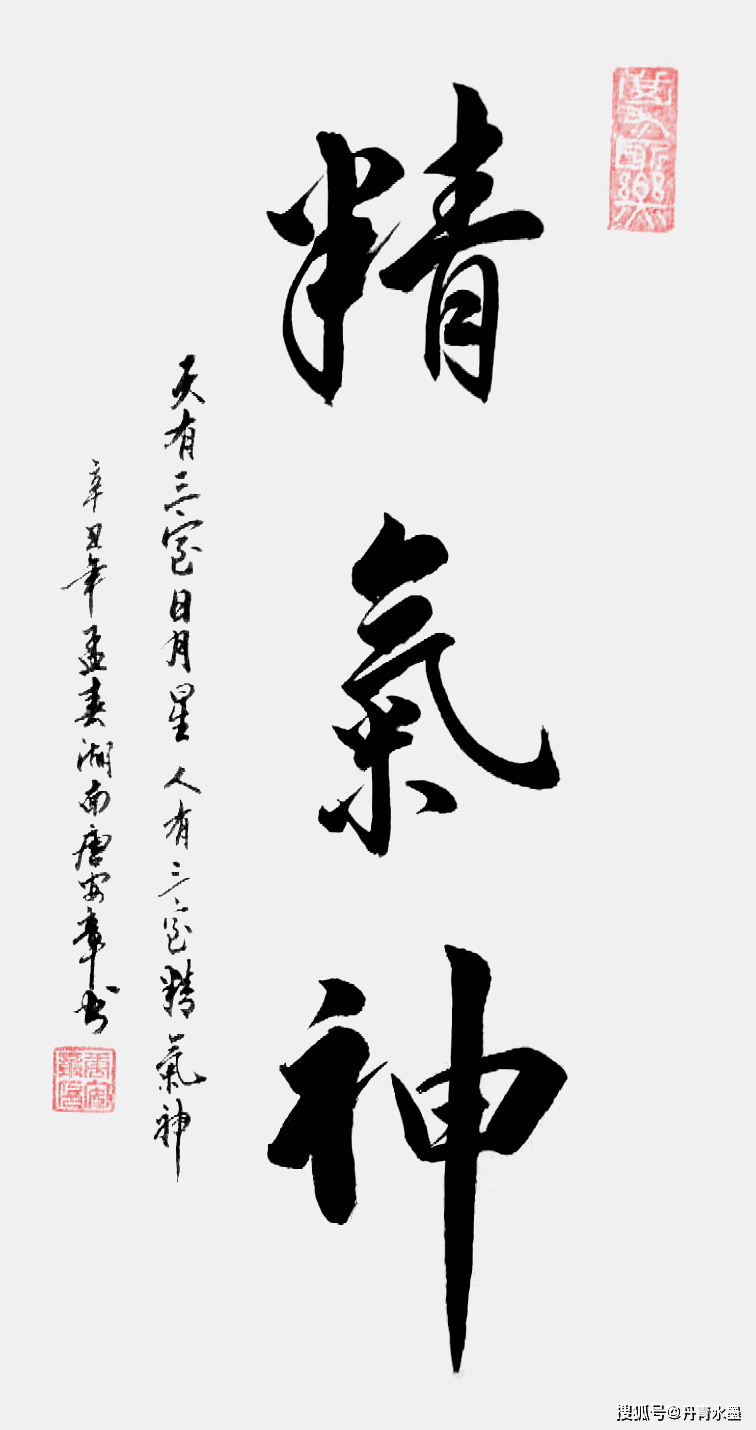 精氣神
天有三宝日月星人有三宝精氣神
辛丑年孟春湖南唐安章书
搜狐号@丹青水墨